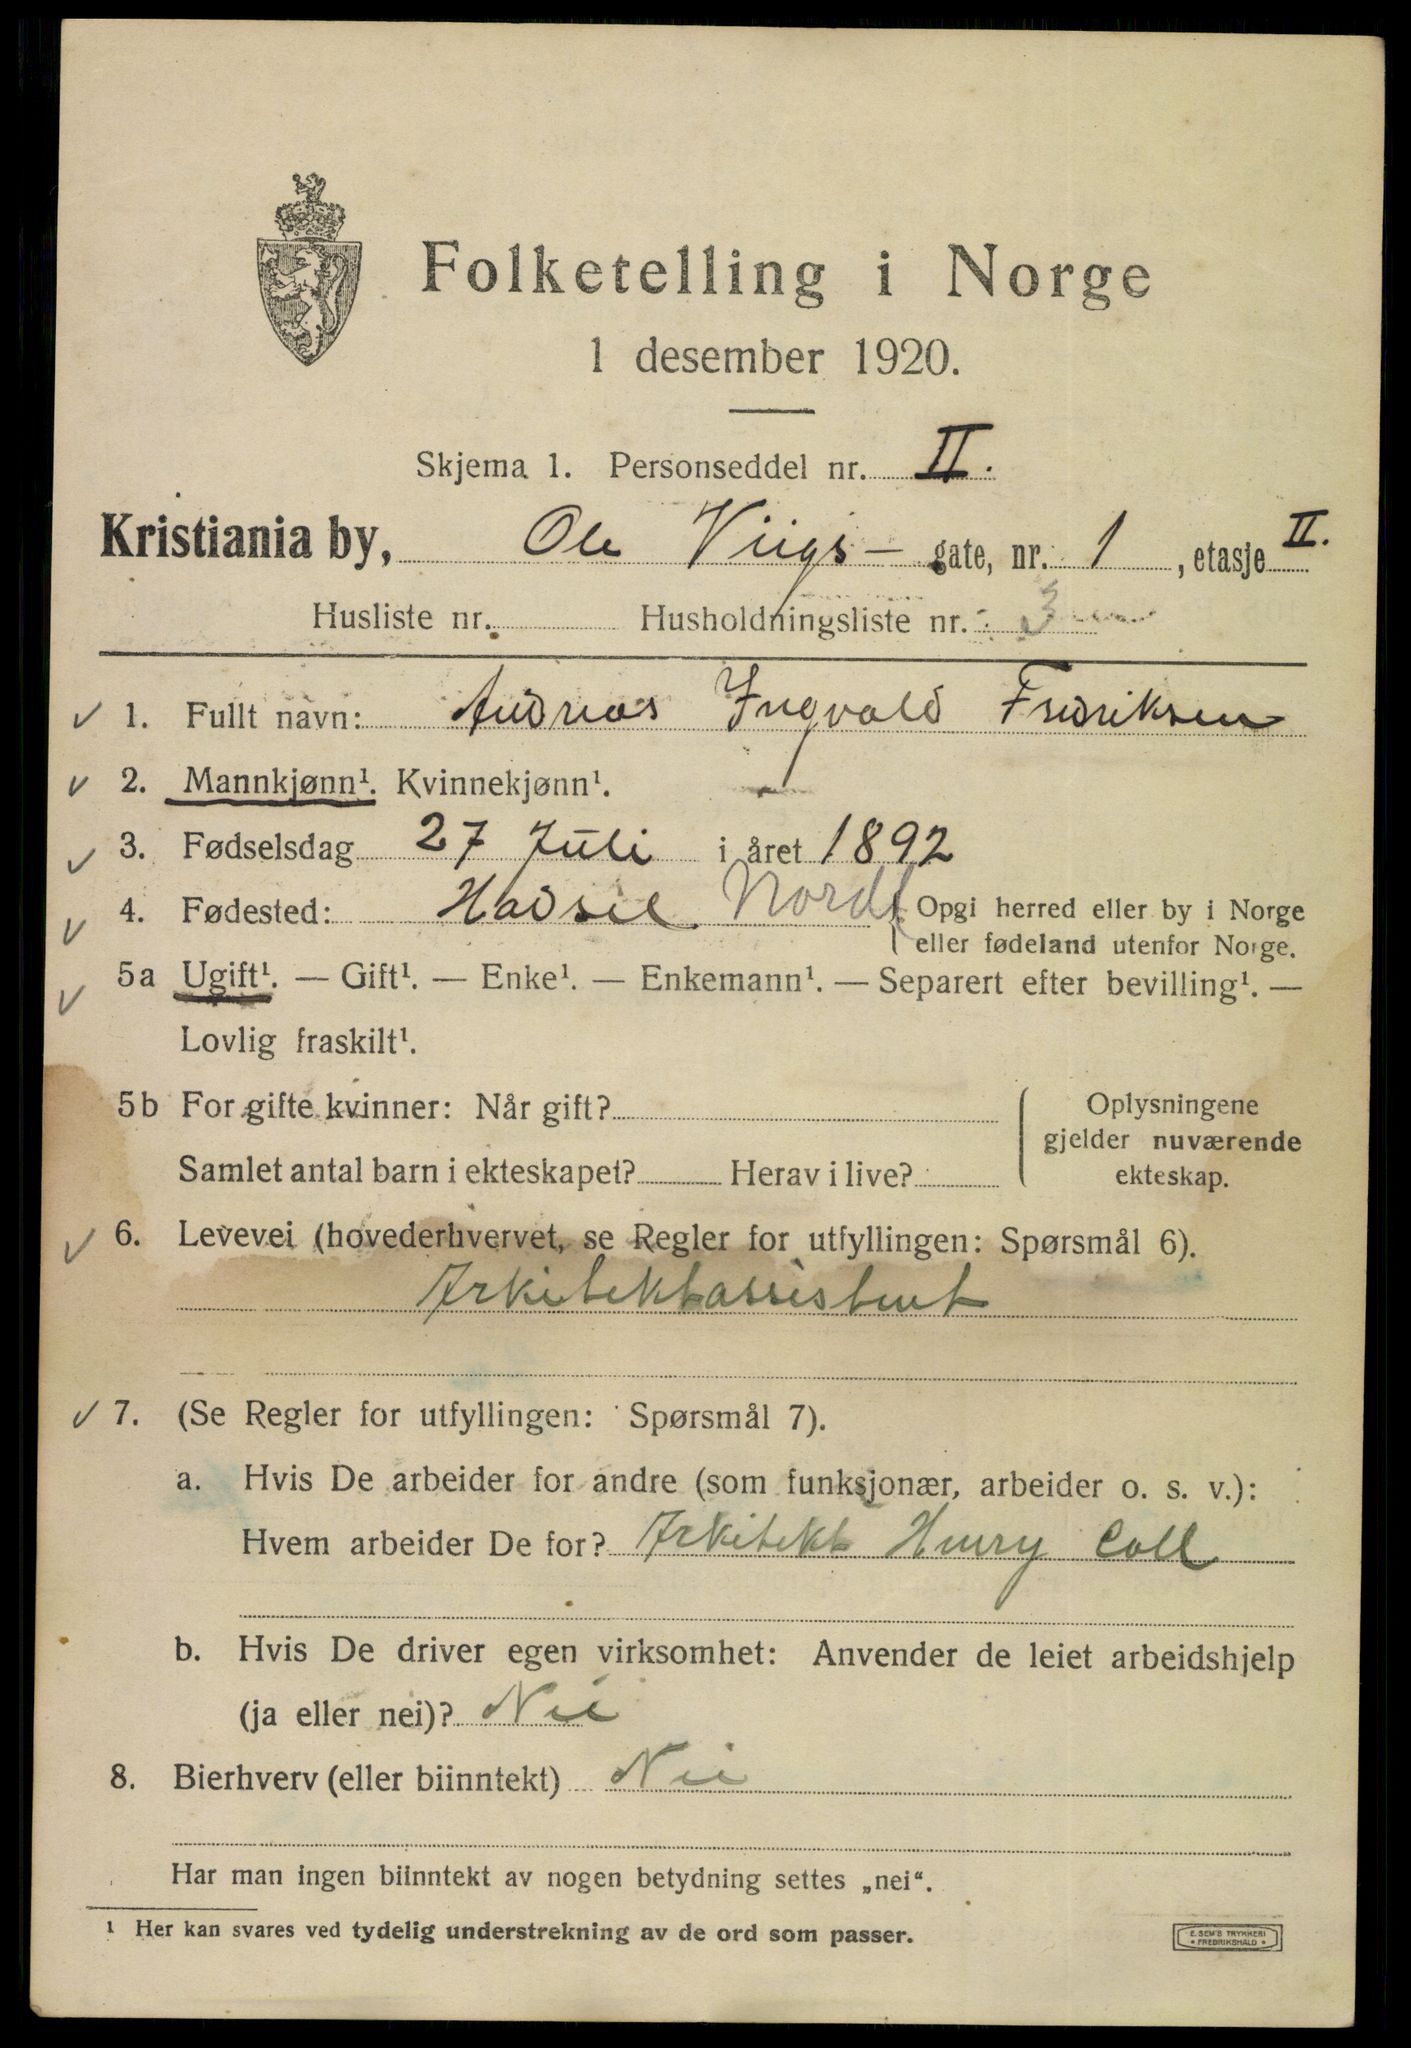 Folketelling i Norge
1 desember 1920.
Skjema 1. Personseddel nr. II.
Kristiania by, Ole Viigs- gate, nr. 1, etasje II.
Husliste nr. Husholdningsliste nr. 3
1. Fullt navn: Andreas Ingvald Fredriksen
2. Mannkjønn¹. Kvinnekjønn¹.
3. Fødselsdag 27 Juli i året 1892
4. Fødested: Hadsel Nordl { Opgi herred eller by i Norge
eller fødeland utenfor Norge.
5a Ugift¹. — Gift¹. — Enke¹. — Enkemann¹. — Separert efter bevilling¹. —
Lovlig fraskilt¹.
5b For gifte kvinner: Når gift?
Samlet antal barn i ekteskapet? Herav i live?
Oplysningene
gjelder nuværende
ekteskap.
6. Levevei (hovederhvervet, se Regler for utfyllingen: Spørsmål 6).
Arkitektassistent
7. (Se Regler for utfyllingen: Spørsmål 7).
a. Hvis De arbeider for andre (som funksjonær, arbeider o. s. v.):
Hvem arbeider De for? Arkitekt Henry Coll
b. Hvis De driver egen virksomhet: Anvender de leiet arbeidshjelp
(ja eller nei)? Nei
8. Bierhverv (eller biinntekt) Nei
Har man ingen biinntekt av nogen betydning settes „nei“.
¹ Her kan svares ved tydelig understrekning av de ord som passer.
E. SEM'S TRYKKERI
• FREDRIKSHALD •